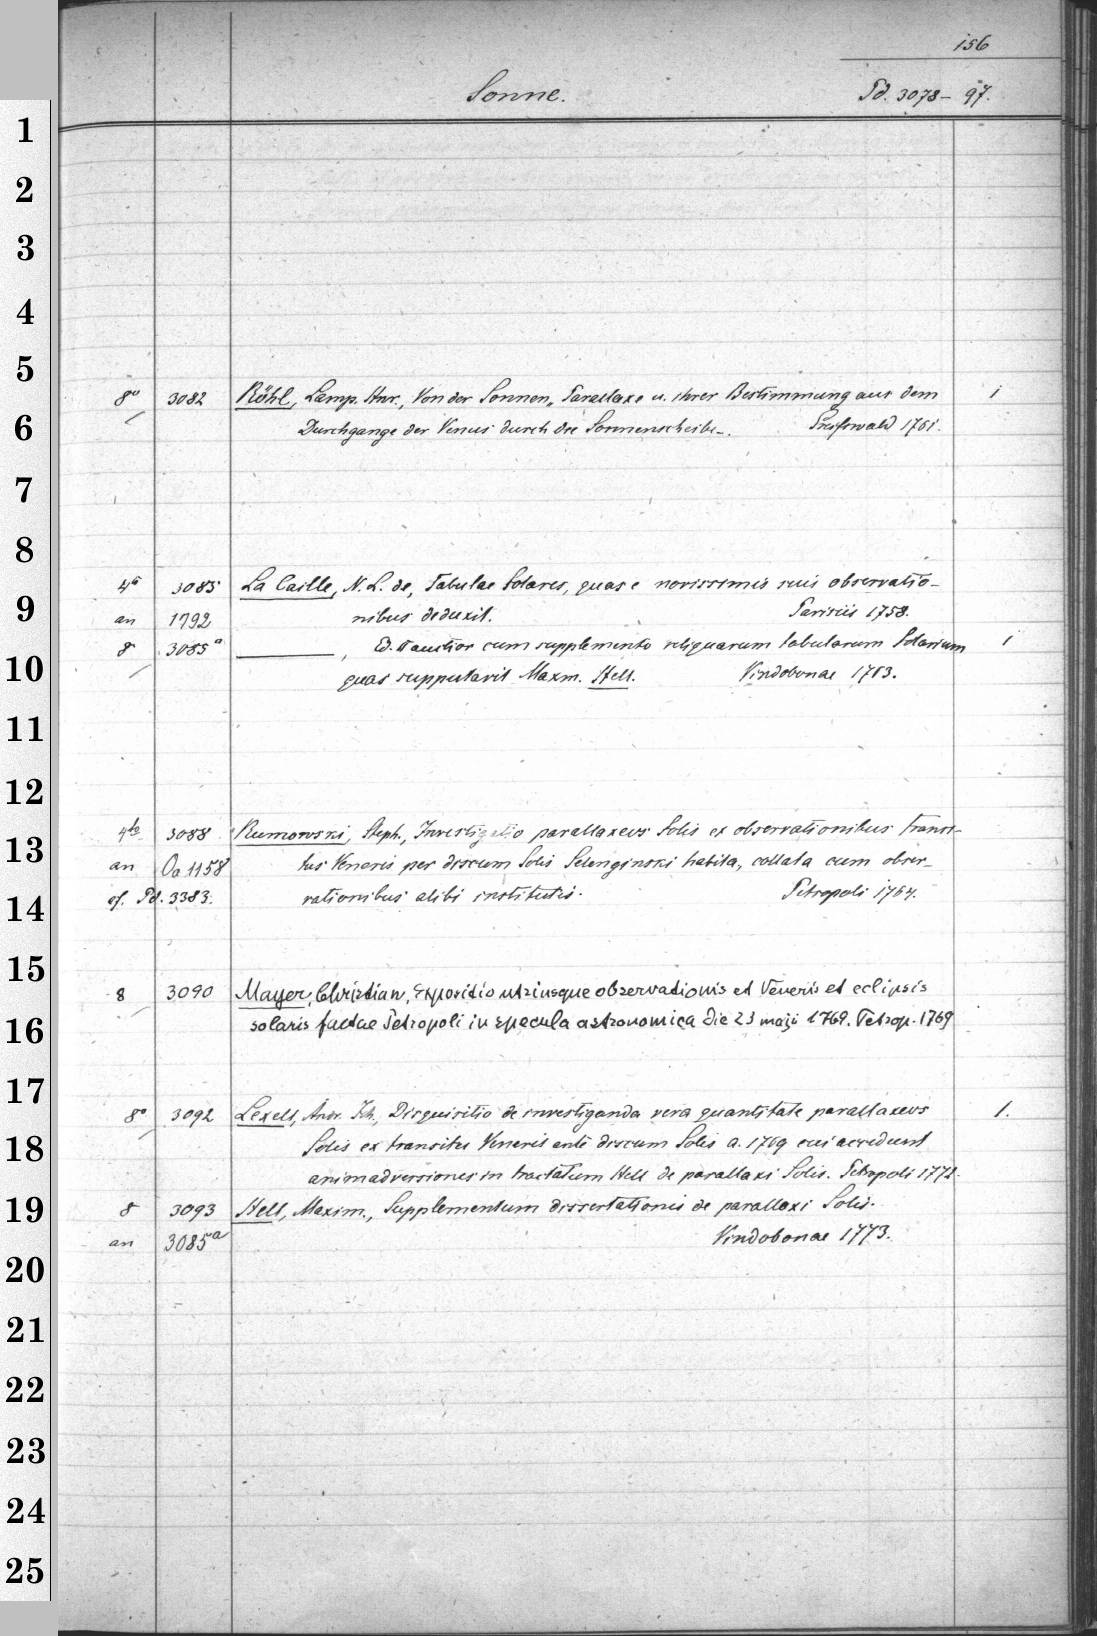 156
Sonne. Pd. 3078 - 97.
1
2
3
4
5
8° 3082 Röhl, Lamp. Hnr., Von der Sonnen-Parallaxe u. ihrer Bestimmung aus dem 1
6 Durchgange der Venus durch die Sonnenscheibe. Greifswald 1761.
7
8
4° 3085 La Caille, N. L. de, Tabulae Solares, quas e novissimis suis observatio-
9 an 1792 nibus deduxit. Parisiis 1758.
8 3085a ______, Ed. auctior cum supplemento reliquarum tabularum Solarium 1
10 quas supputavit Maxm. Hell. Vindobonae 1763.
11
12
4to 3088 Rumowski, Steph., Investigatio parallaxeos Solis ex observationibus transi-
13 an Oa 1158 tus Veneris per discum Solis Selenginski habita, collata cum obser-
14 cf. Pd. 3383. vationibus alibi institutis. Petropoli 1764.
15
8 3090 Mayer, Christian, Expositio utriusque observationis et Veneris et eclipsis
16 solaris factae Petropoli in specula astronomica die 23 maji 1769. Petrop. 1769
17
8° 3092 Lexell, Andr. Joh., Disquisitio de investiganda vera quantitate parallaxeos 1.
18 Solis ex transitu Veneris ante discum Solis a. 1769 cui accedunt
animadversiones in tractatum Hell de parallaxi Solis. Petropoli 1772.
19 8 3093 Hell, Maxim., Supplementum dissertationis de parallaxi Solis.
an 3085a Vindobonae 1773.
20
21
22
23
24
25